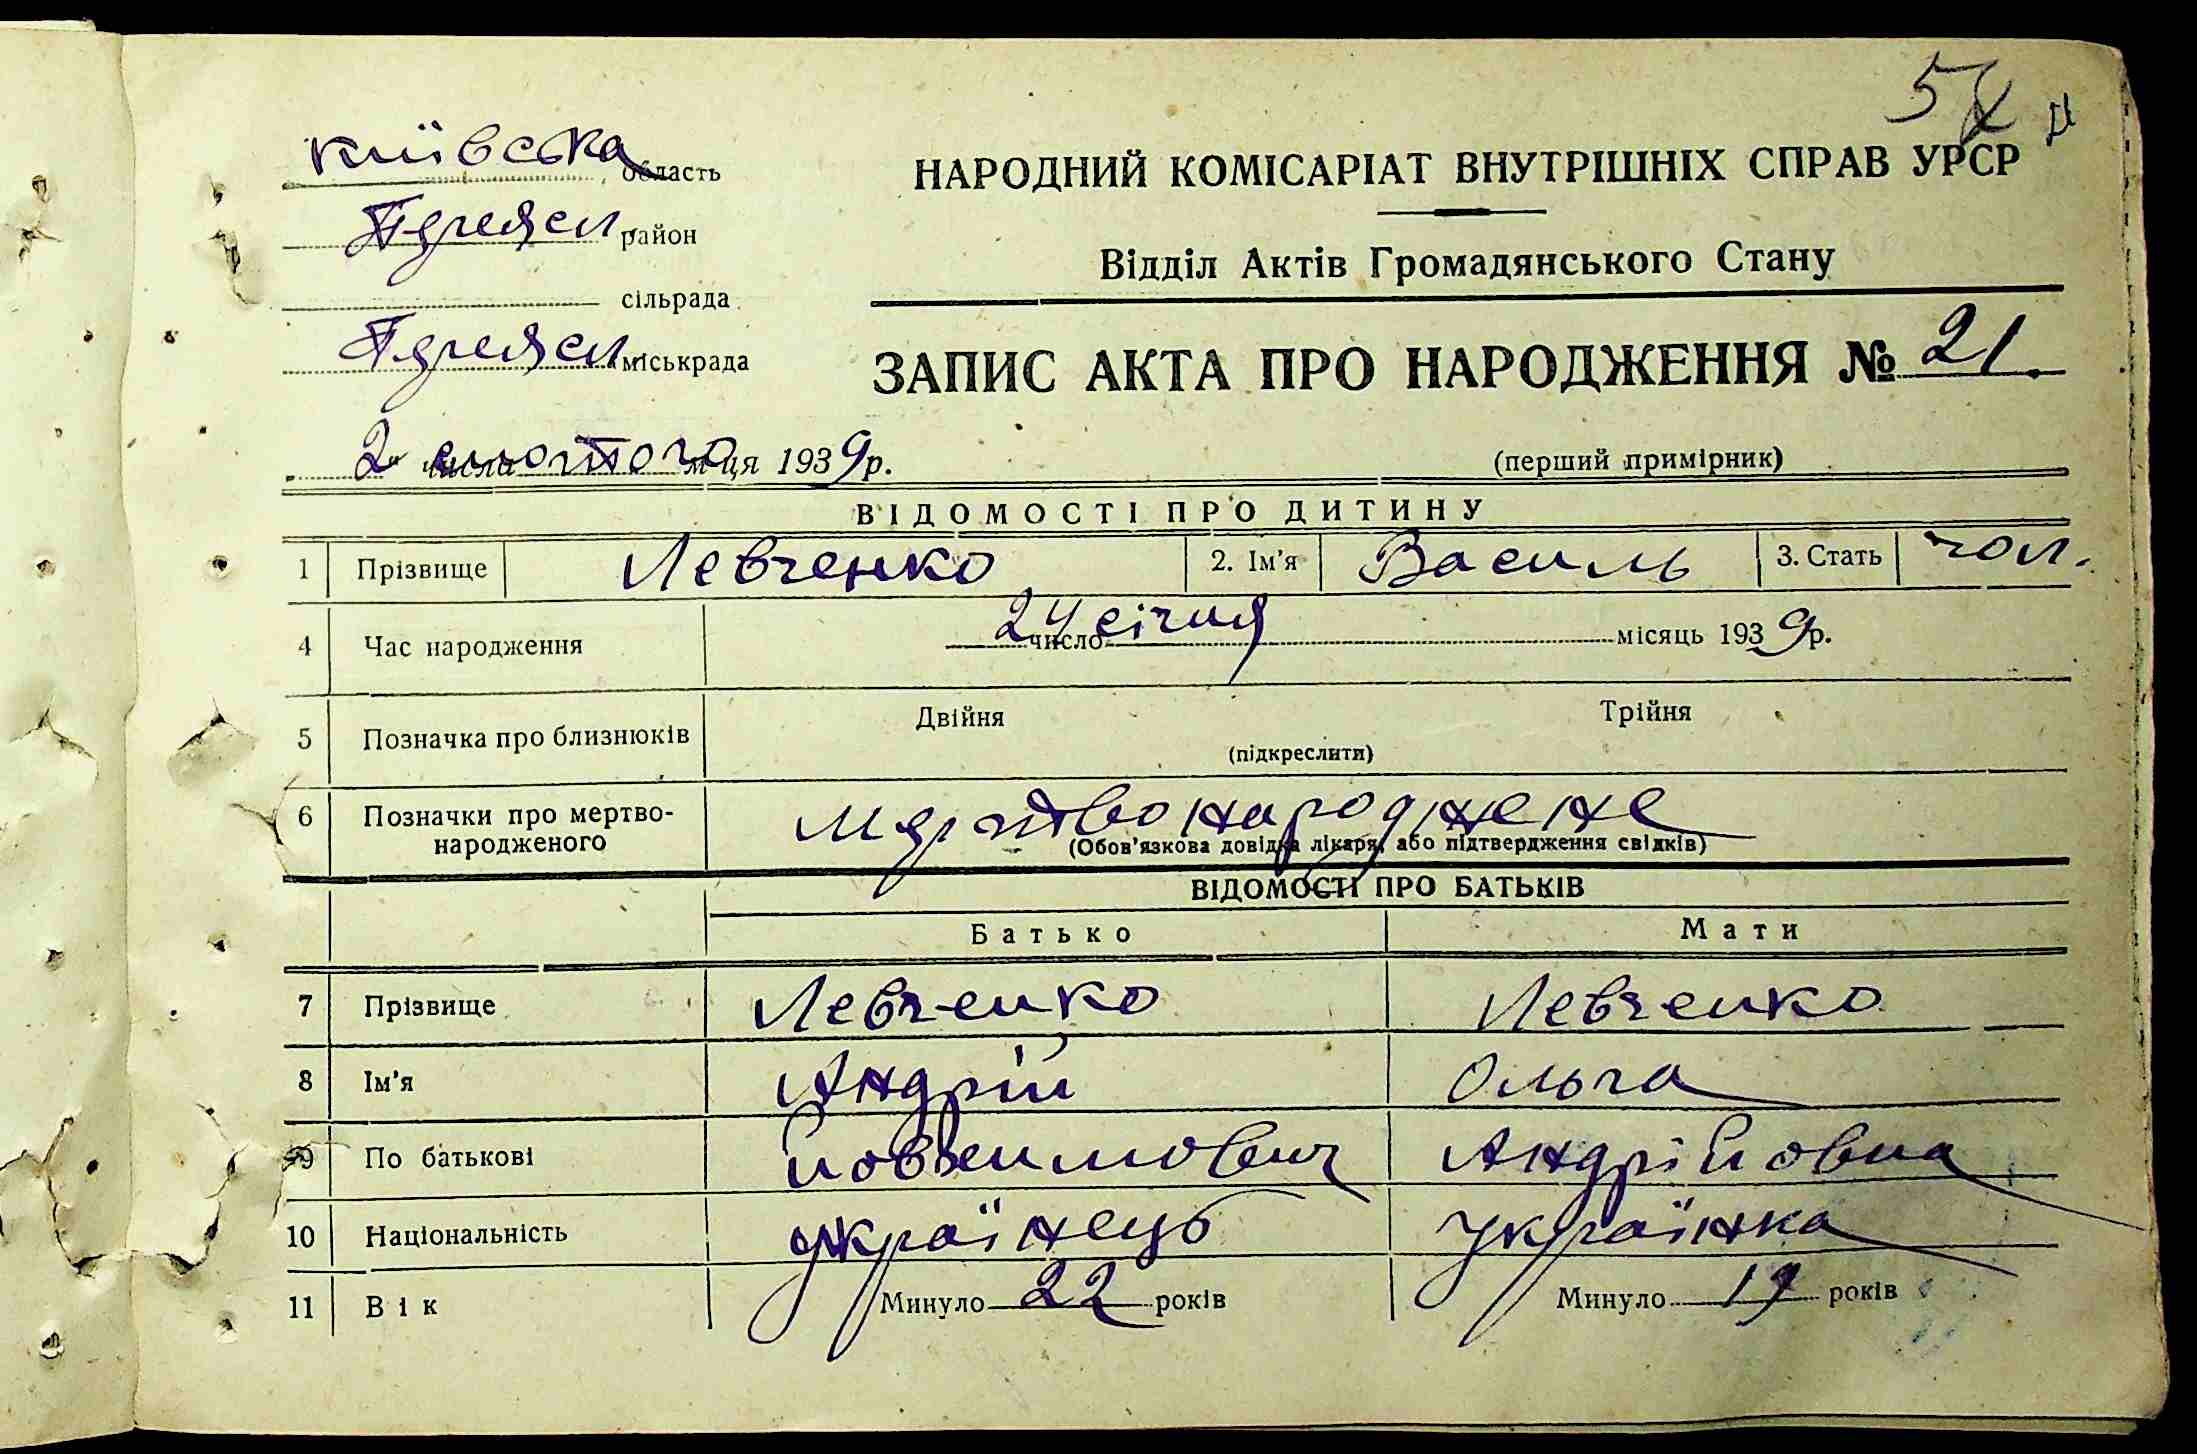 5
НАРОДНИЙ КОМІСАРІАТ ВНУТРІШНІХ СПРАВ УРСР
Відділ Актів Громадянського Стану
київська область
район
сільрада
міськрада
ЗАПИС АКТА ПРО НАРОДЖЕННЯ № 21.
2 числа лютого м-ця 1939р.
(перший примірник)
ВІДОМОСТІ ПРО ДИТИНУ
1 Прізвище Левченко 2. Ім'я Василь 3. Стать чол.
4 Час народження 24 число січня місяць 1939р.
5 Позначка про близнюків Двійня Трійня
(підкреслити)
6 Позначки про мертво-
народженого
мертвонароджене
(Обов'язкова довідка лікаря, або підтвердження свідків)
ВІДОМОСТІ ПРО БАТЬКІВ
Батько Мати
7 Прізвище Левченко Левченко
8 Ім'я Андрій Ольга
9 По батькові Андрійовна
10 Національність українець українка
11 Вік Минуло 22 років Минуло років